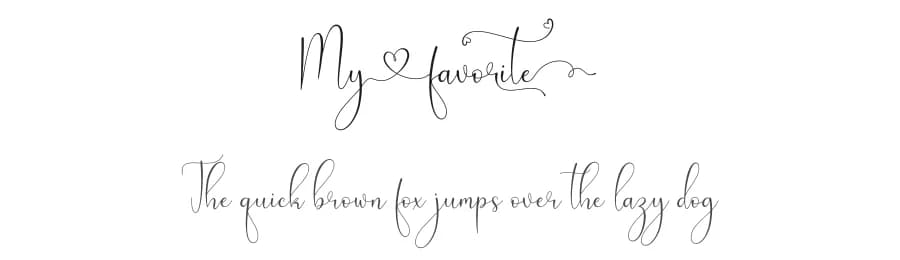 My favorite
The quick brown fox jumps over the lazy dog